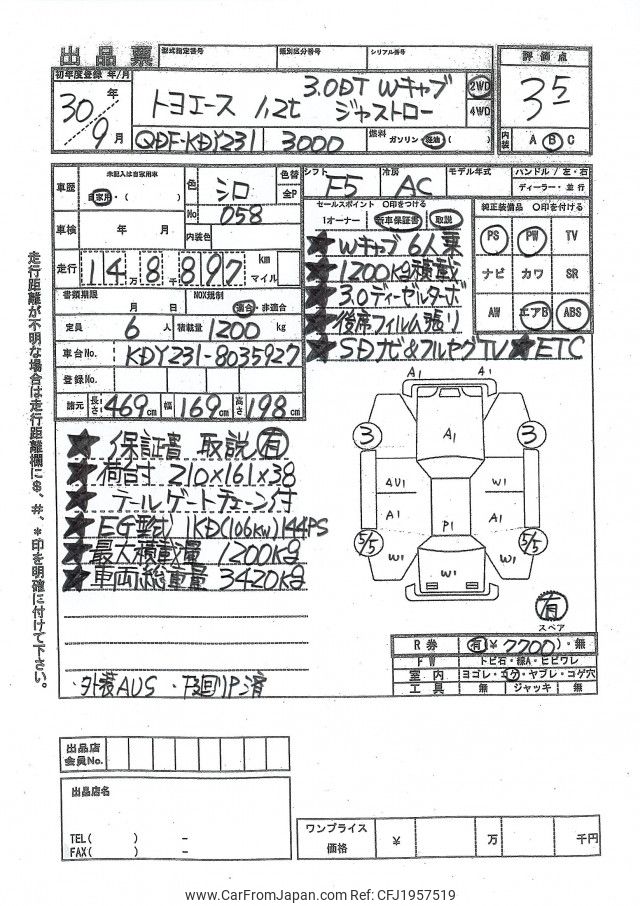 出品票
型式指定番号
類別区分番号
シリアル番号
評価点
3 5
内装 A B C
初年度登録 年/月
30年
9月
トヨエース 1,2t
3.0DT Wキャブ
ジャストロー
2WD
4WD
QDF-KDY231
3000
燃料 ガソリン・軽油・( )
車歴
未記入は自家用車
自家用・( )
色
シロ
色替
全P
No 058
シフト
F5
冷房
AC
モデル年式
ハンドル / 左・右
ディーラー・並行
車検 年 月
内装色
走行 14万8千897 km
マイル
書類期限
月 日
NOX規制
適合・非適合
定員 6人
積載量 1200 kg
車台No. KDY231-8035927
登録No.
諸元 長さ 469cm 幅 169cm 高さ 198cm
セールスポイント ○印をつける
1オーナー 新車保証書 取説
★ Wキャブ 6人乗
★ 1200Kg積載
★ 3.0ディーゼルターボ
★ 後席フィルム張り
★ SDナビ&フルセグTV ★ ETC
純正装備品 ○印を付ける
PS PW TV
ナビ カワ SR
AW エアB ABS
走行距離が不明な場合は走行距離欄に$、#、*印を明確に付けて下さい。
★ 保証書 取説 有
★ 荷台寸 210×161×38
★ テールゲートチェーン付
★ EG型式 1KD(106KW) 144PS
★ 最大積載量 1200Kg
★ 車両総重量 3420Kg
・外装AUS ・下回りP済
A1 A1
3 A1 3
4U1 W1
A1 A1
P1
5/5 5/5
W1 W1 W1
有
スペア
R券 有(¥ 7700)・無
FW トビ石・線A・ヒビワレ
室内 ヨゴレ・コゲ・ヤブレ・コゲ穴
工具 無 ジャッキ 無
出品店
会員No.
出品店名
TEL( ) -
FAX( ) -
ワンプライス
価格
¥ 万 千円
www.CarFromJapan.com Ref: CFJ1957519